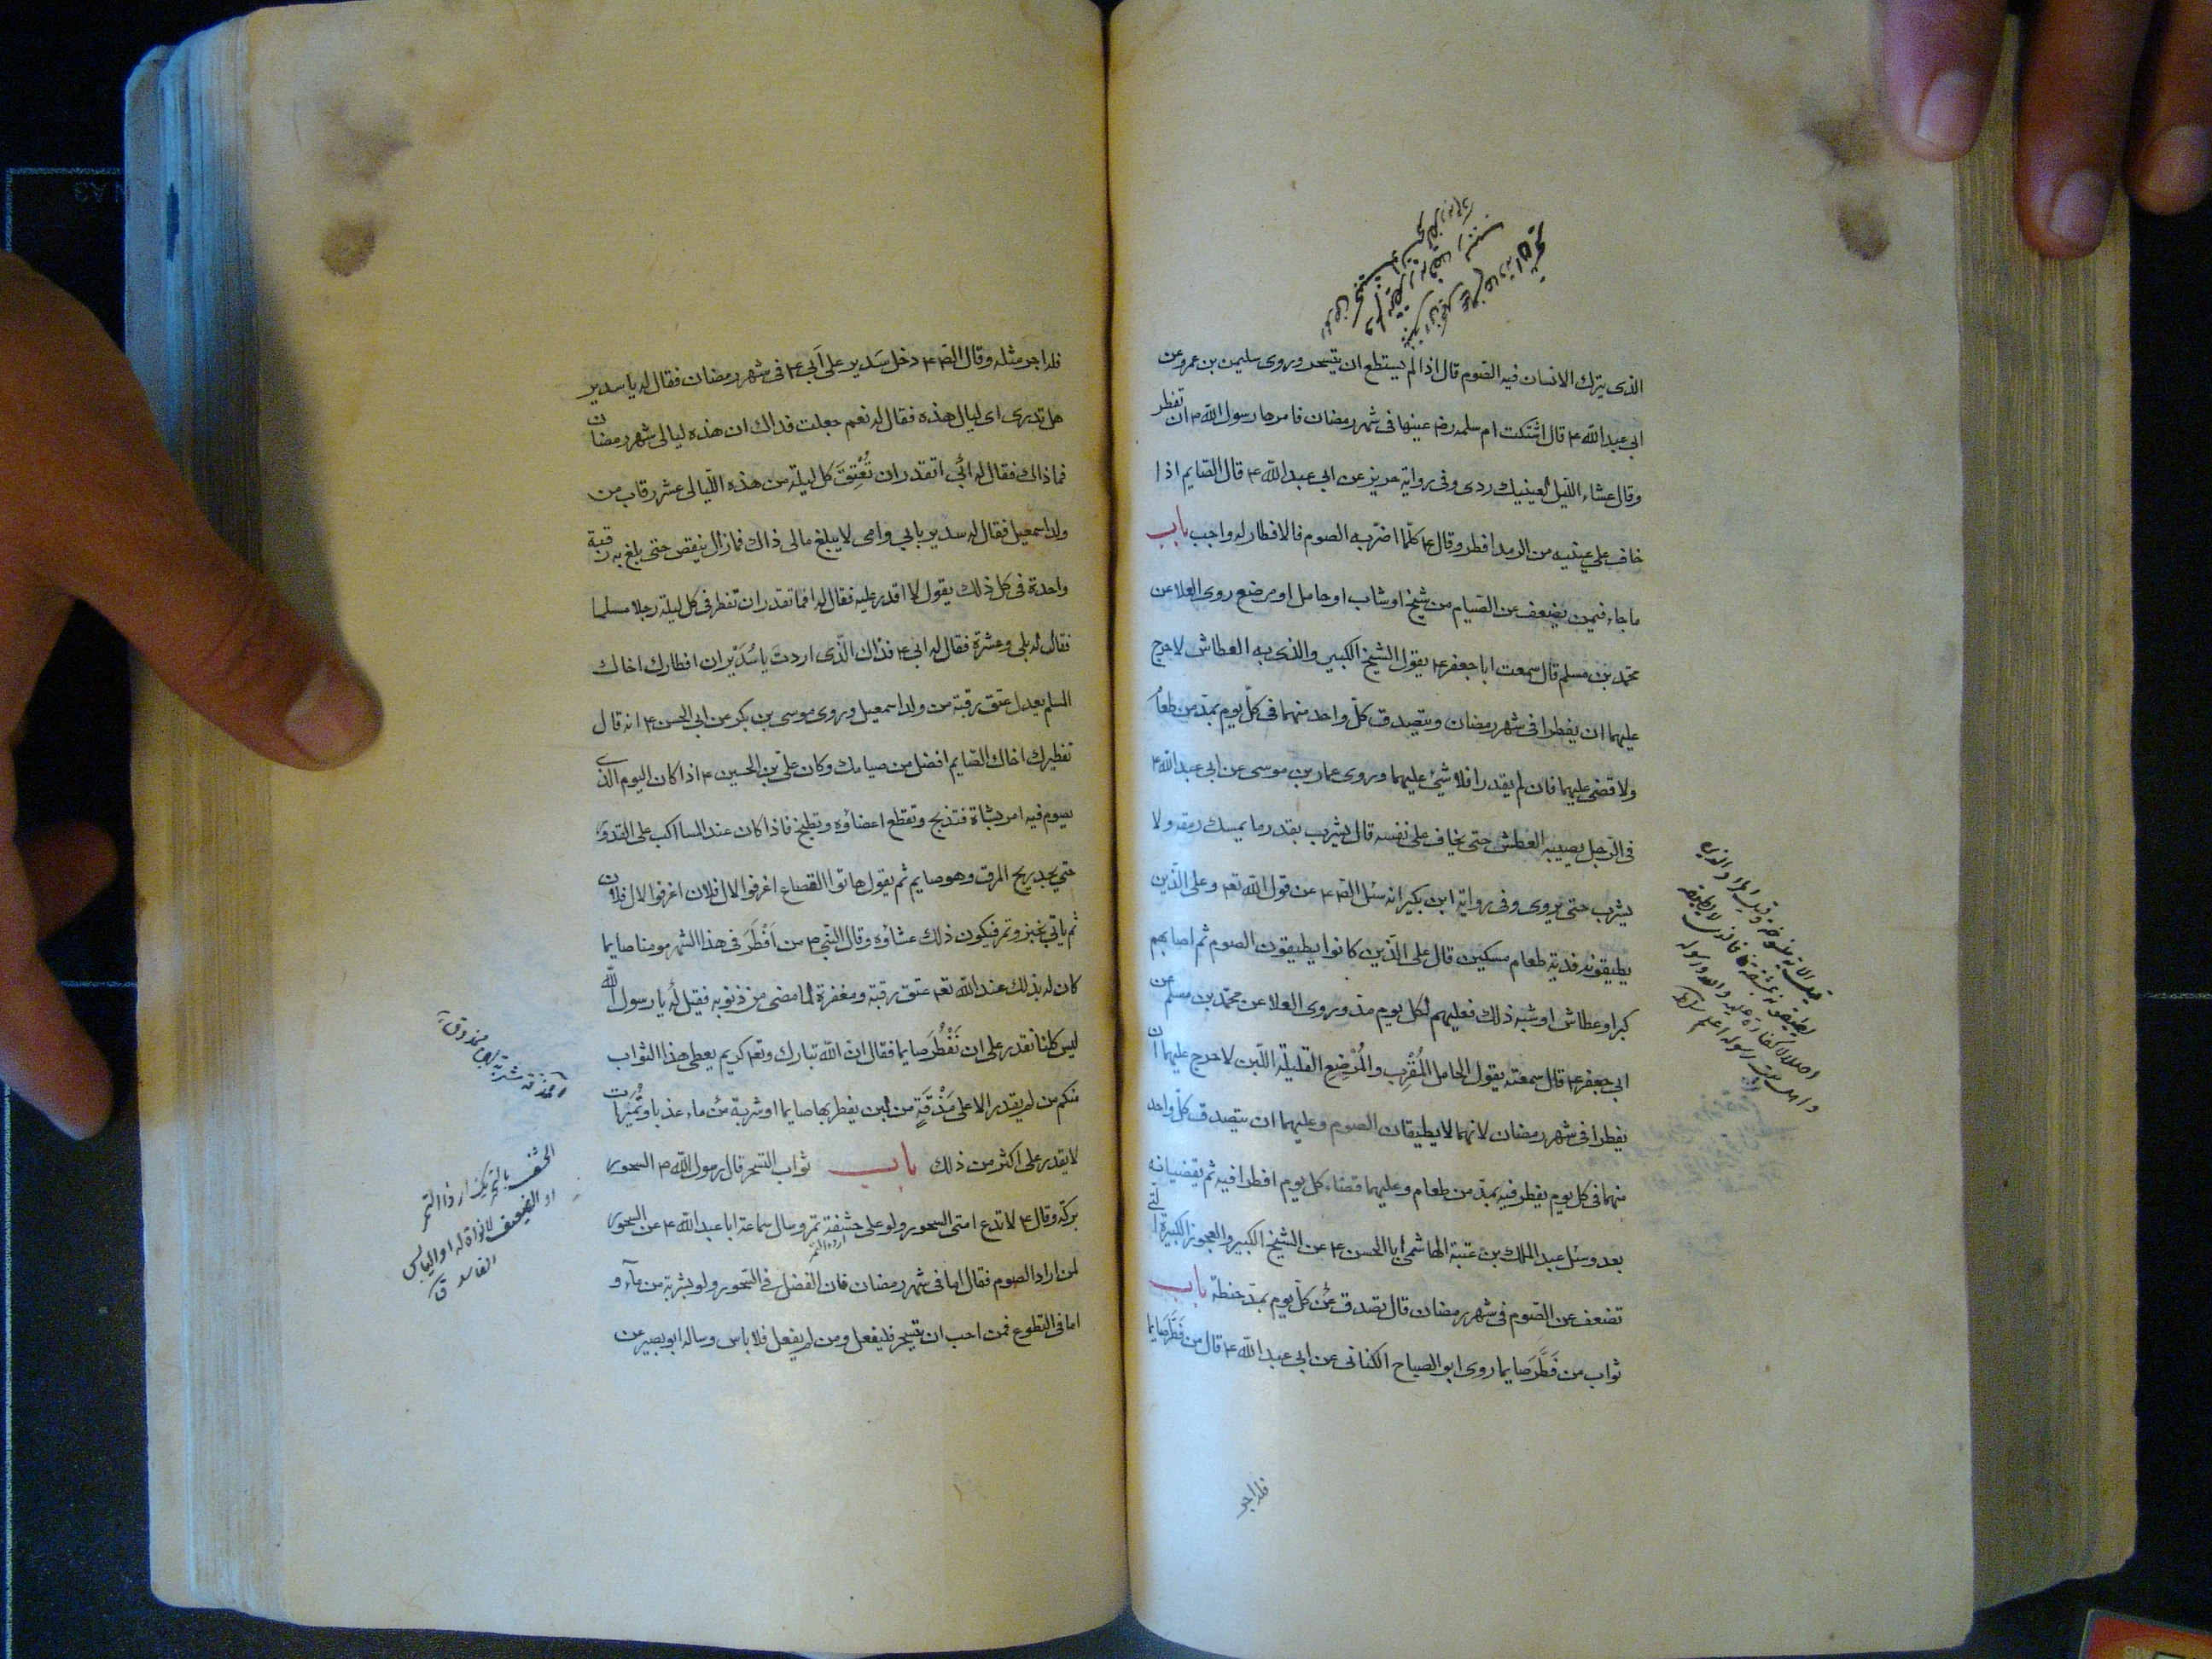 الذى يترك الانسان فيه الصّوم قال اذا لم يستطع ان يتسحر وروى سليمن بن عمرو عن
ابى عبد الله ع قال اشتكت ام سلمه رض عينها فى شهر رمضان فامرها رسول الله ص ان تفطر
وقال عشاء اللّيل لعينيك ردى وفى رواية حريز عن ابى عبد الله ع قال الصّايم اذا
خاف على عينيه من الرمد افطر وقال ع كلّما اضرّبه الصوم فالافطار له واجب باب
ما جاء فيمن يضعف عن الصّيام من شيخ او شاب او حامل او مرضع روى العلا عن
محمّد بن مسلم قال سمعت ابا جعفر ع يقول الشيخ الكبير والذى به العطاش لا حرج
عليهما ان يفطرا فى شهر رمضان ويتصدق كلّ واحد منهما فى كلّ يوم بمدّ من طعام
ولا قضى عليهما فان لم يقدرا فلا شىء عليهما وروى عمار بن موسى عن ابى عبد الله ع
فى الرّجل يصيبه العطش حتى يخاف على نفسه قال يشرب بقدر ما يمسك رمقه ولا
يشرب حتى يروى وفى رواية ابن بكير انه سئل الصّ ع عن قول الله تع وعلى الّذين
يطيقونه فدية طعام مسكين قال على الّذين كانوا يطيقون الصوم ثم اصابهم
كبر او عطاش او شبه ذلك فعليهم لكل يوم مدّ وروى العلا عن محمّد بن مسلم عن
ابى جعفر ع قال سمعته يقول الحامل المُقْرِب والمُرْضِعِ القليلة اللّبن لا حرج عليهما ان
يفطرا فى شهر رمضان لانهما لا يطيقان الصوم وعليهما ان يتصدق كلّ واحد
منهما فى كل يوم يفطر فيه بمدّ من طعام وعليهما قضاء كل يوم افطرا فيه ثم يقضيانه
بعد وسئل عبد الملك بن عتبة الهاشمى ابا الحسن ع عن الشيخ الكبير والعجوز الكبيرة التى
تضعف عن الصّوم فى شهر رمضان قال تصدق عن كلّ يوم بمدّ حنطة باب
ثواب من فَطَّرَ صايما روى ابو الصباح الكنانى عن ابى عبد الله ع قال من فَطَّرَ صايما
فله اجر
فله اجر مثله وقال الصّ ع دخل سَدير على اَبى ع فى شهر رمضان فقال له يا سدير
هل تدرى اى ليال هذه فقال له نعم جعلت فداك ان هذه ليالى شهر رمضان
فما ذاك فقال له اَبى اتقدر ان تُعْتِقَ كل ليلة من هذه اللّيالى عشر رقاب من
ولد اسمعيل فقال له سدير بابى وامى لا يبلغ مالى ذاك فما زال ينقص حتى بلغ به رقبة
واحدة فى كل ذلك يقول لا اقدر عليه فقال له افما تقدر ان تفطر فى كل ليلة رجلا مسلما
فقال له بلى وعشرة فقال له ابى ع فذاك الّذى اردتَ يا سُدَيْر ان افطارك اخاك
المسلم يعدل عتق رقبة من ولد اسمعيل وروى موسى بن بكر عن ابى الحسن ع انه قال
تفطيرك اخاك الصّايم افضل من صيامك وكان على بن الحسين ع اذا كان اليوم الذى
يصوم فيه امر بشاة فتذبح وتقطع اعضاؤه وتطبخ فاذا كان عند المسا اكب على القدور
حتى يجد ريح المرق وهو صايم ثم يقول هاتوا القصاع اغرفوا لال فلان اغرفوا لال فلان
ثم ياتى بخبز وتمر فيكون ذلك عشاؤه وقال النّبى ص من اَفْطَرَ فى هذا الشهر مومنا صايما
كان له بذلك عند الله تع عتق رقبة ومغفرة لما مضى من ذنوبه فقيل له يا رسول الله
ليس كلنا نقدر على ان نَفْطُرَ صايما فقال انّ الله تبارك وتع كريم يعطى هذا الثواب
منكم من لم يقدر الا على مَذْقَةٍ من لبن يفطر بها صايما او شربة من ماء عذب او تُمَيْرات
لا يقدر على اكثر من ذلك باب ثواب التسحر قال رسول الله ص السحور
بركة وقال ع لا تدع امتى السحور ولو على حشفة تمر وسال سماعة ابا عبد الله ع عن السحور
اردءا التمر
لمن اراد الصوم فقال اما فى شهر رمضان فان الفضل فى السّحور ولو بشربة من ماء و
اما فى التطوع فمن احب ان يتسحر فليفعل ومن لم يفعل فلا باس وساله ابو بصير عن
الحشف بالتحريك اردءا التمر
او الضعيف لا نواة له او اليابس
الفاسد ق